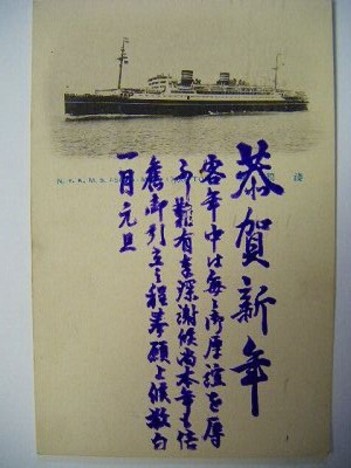 N. Y. K. M. S.
淺
恭賀新年
客年中は毎々御厚誼を辱
うし難有奉深謝候尚本年も倍
舊御引立之程奉願上候敬白
一月元旦